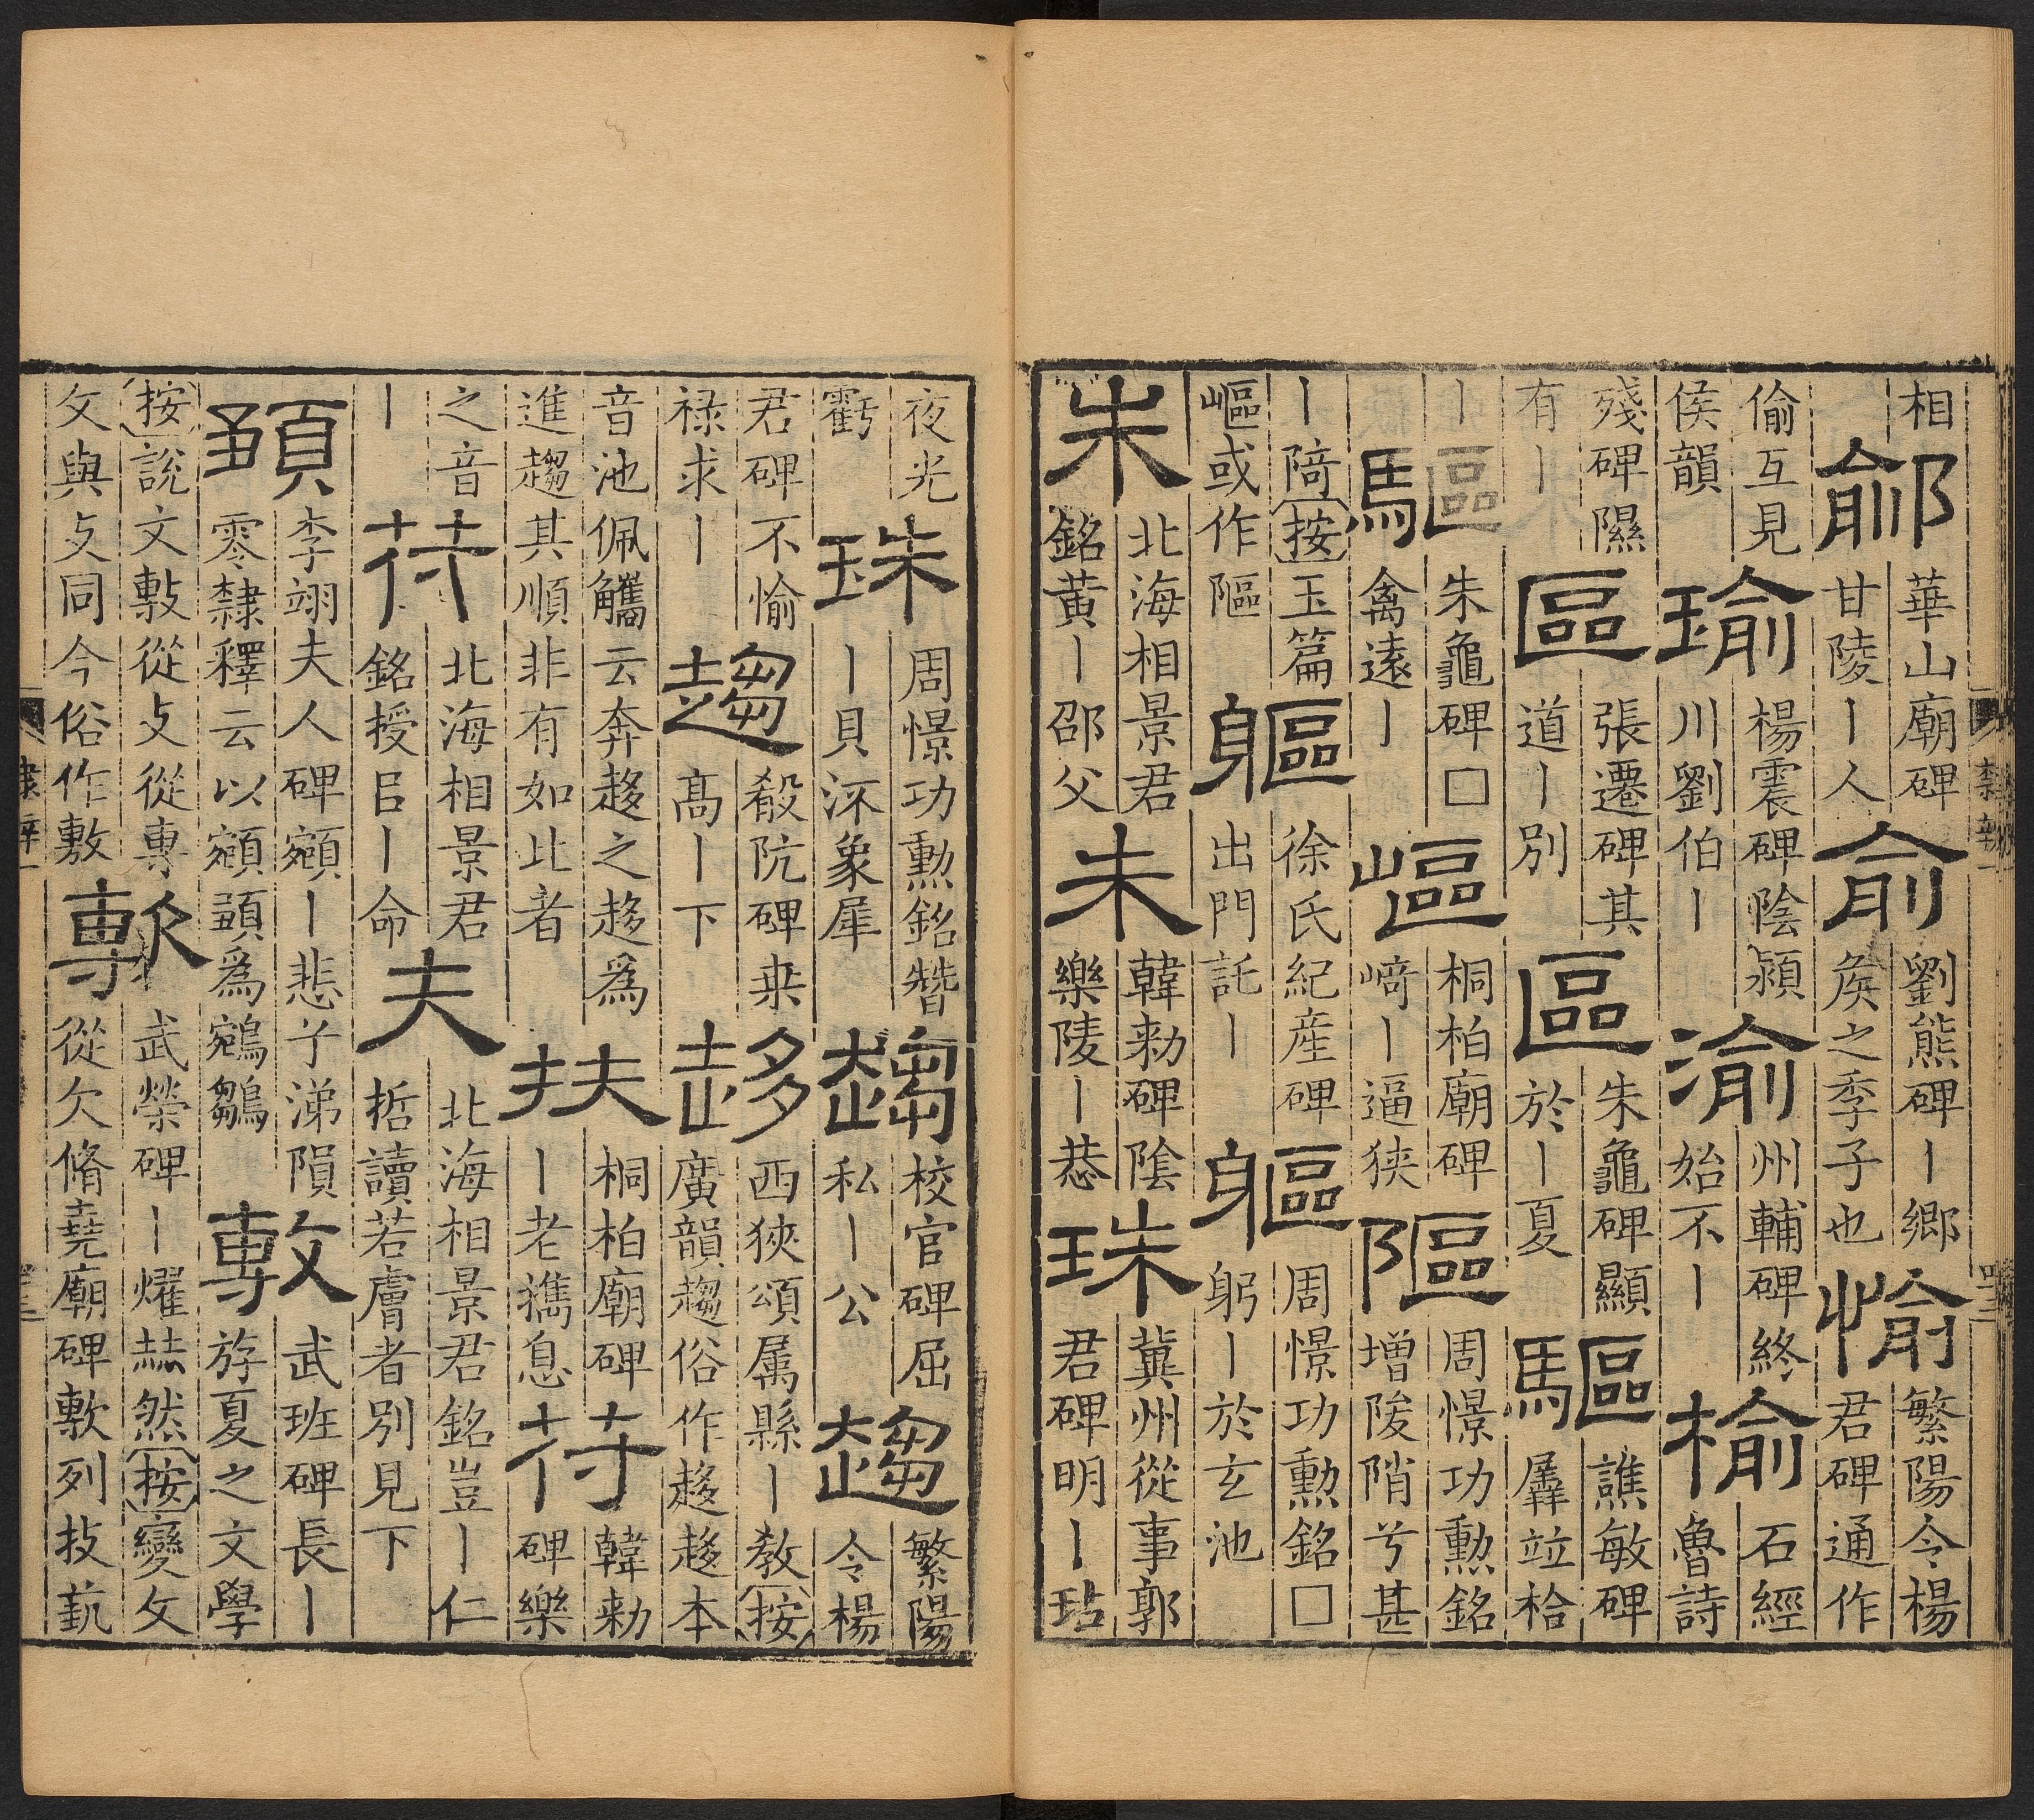 相鄃華山廟碑甘陵丨人俞劉熊碑丨鄉矦之季子也愉繁陽令楊君碑通作
偷互見侯韻瑜楊震碑陰潁川劉伯丨渝州輔碑終始不丨榆石經魯詩
殘碑隰有丨區張遷碑其道丨別區朱龜碑顯於丨夏驅譙敏碑竝
丨驅朱龜碑□禽遠丨嶇桐柏廟碑﨑丨逼狹䧢周憬功勳銘增陖陗兮甚
丨陭按玉篇嶇或作䧢軀徐氏紀産碑出門託丨軀周憬功勳銘□躬丨於玄池
朱北海相景君銘黃丨邵父朱韓勑碑陰樂陵丨恭珠冀州從事郭君碑明丨玷
夜光虧珠周憬功勳銘贊丨貝㳅象犀趨校官碑屈私丨公趨繁陽令楊
君碑不愉禄求丨趨殽阬碑来髙丨下趍西狹頌属縣丨教按廣韻趨俗作趍趍本
音池佩觿云奔趍之趍爲進趨其順非有如此者扶桐柏廟碑丨老攜息苻韓勑碑樂
之音丨苻北海相景君銘授㠯丨命夫北海相景君銘豈丨仁哲讀若膚者別見下
李翊夫人碑丨悲子涕隕零隸釋云以爲鵷鶵敷武班碑長丨斿夏之文學
按說文敷從攴從尃攵與攴同今俗作敷武榮碑丨燿赫然按變攵從欠脩堯廟碑列技蓺